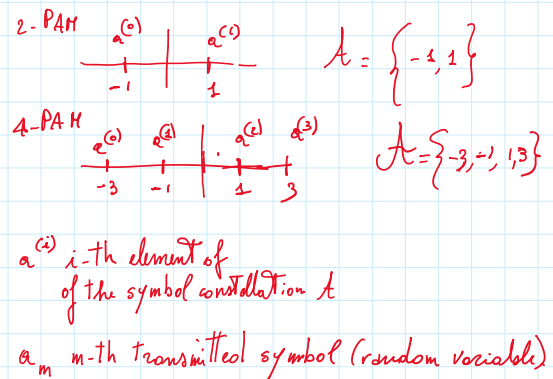 2-PAM
a^(0) a^(1)
-1 1
A = {-1, 1}
4-PAM
a^(0) a^(1) a^(2) a^(3)
-3 -1 1 3
A = {-3, -1, 1, 3}
a^(i) i-th element of
of the symbol constellation A
a_m m-th transmitted symbol (random variable)